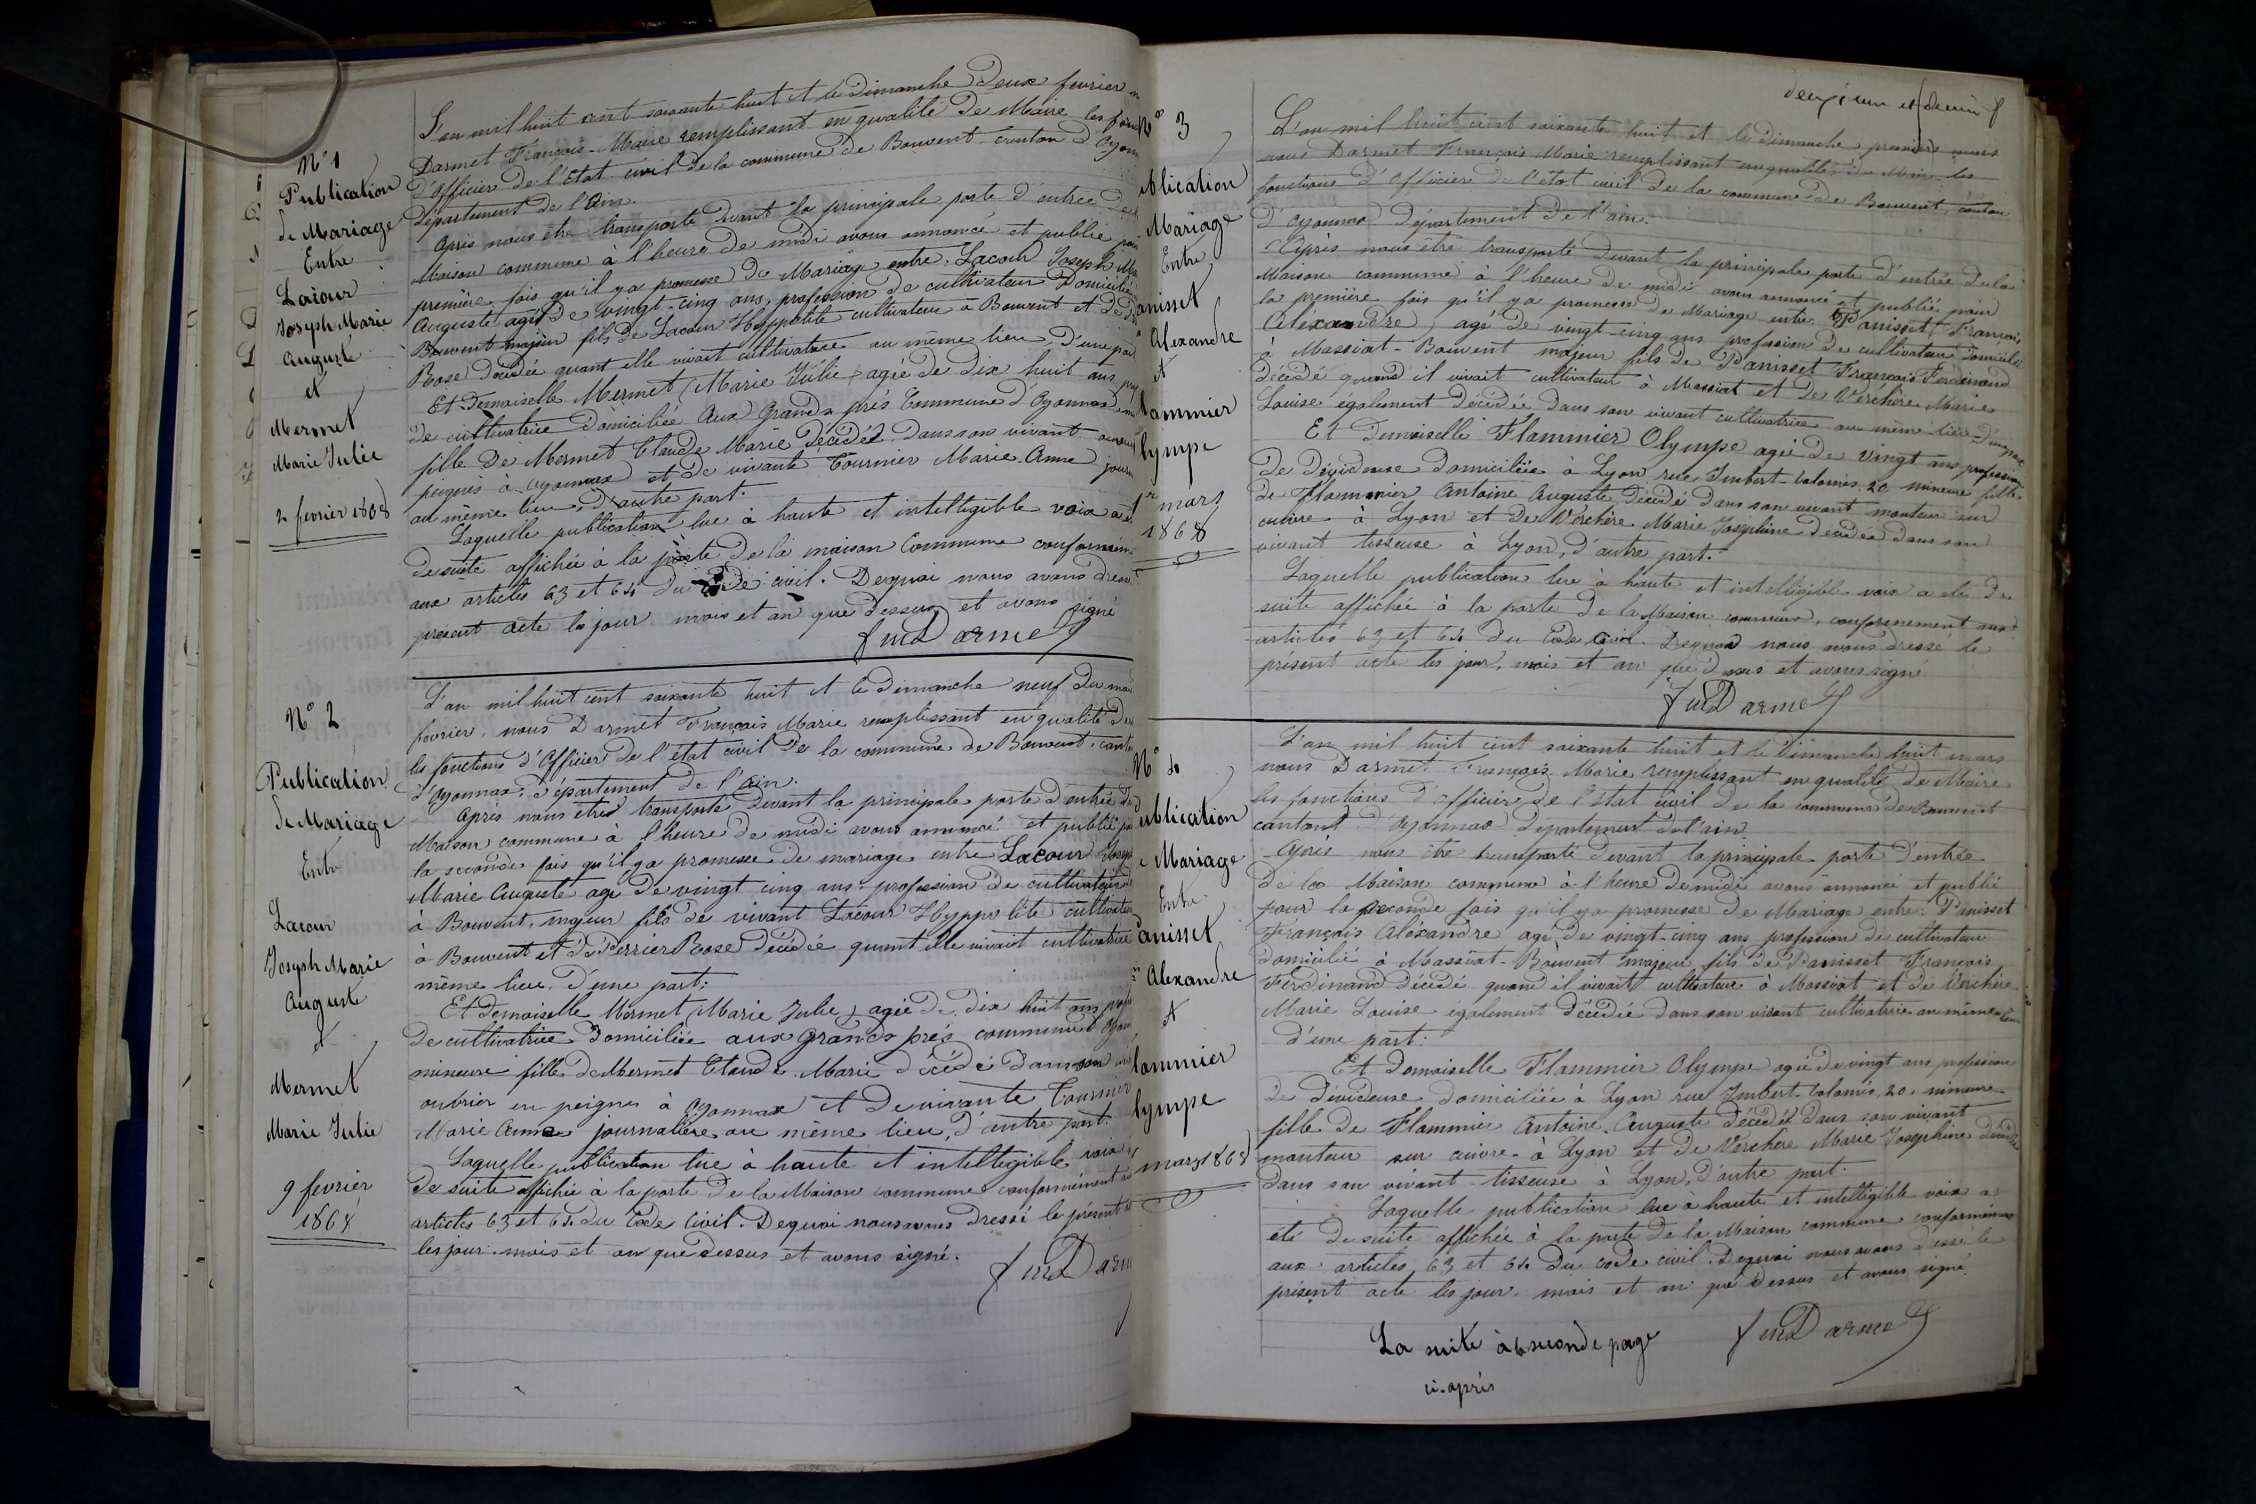 N° 1
Publication
de Mariage
Entre
Lacour
Joseph Marie
Auguste
et
Mermet
Marie Julie
2 fevrier 1868
L'an mil huit cent soixante huit et le Dimanche Deux fevrier
Darmet François-Marie remplissant en qualité de Maire les fonc
d'Officier de l'Etat civil de la commune de Bouvent canton d'Oyonn
Département de l'Ain.
Après nous être transporté devant la principale porte d'entrée de
Maison commune à l'heure de midi avons annoncé et publié pour
première fois qu'il y a promesse de Mariage entre Lacour Joseph Ma
Auguste agé de vingt-cinq ans, profession de cultivateur Domicilié
Bouvent majeur fils de Lacour Hyppolite cultivateur à Bouvent et de
Rose Décédée quant elle vivait cultivatrice au même lieu, D'une part
Et Demoiselle Mermet (Marie Julie) agée de dix huit ans
de cultivatrice Domiciliée aux Grands prés Commune d'Oyonnax
fille de Mermet Claude Marie Décédé Dans son vivant
peignes à Oyonnax et de vivante Tournier Marie-Anne journ
au même lieu, D'autre part.
Laquelle publication lue à haute et inteltigible voix a é
de suite affichée à la porte de la maison Commune conformém
aux articles 63 et 64 du code civil. Dequoi nous avons dressé
présent acte les jour mois et an que dessus et avons signé
fmDarmet
N° 2
Publication
de Mariage
Entre
Lacour
Joseph Marie
Auguste
et
Mermet
Marie Julie
9 fevrier
1868
L'an mil huit cent soixante huit et le Dimanche neuf du mois
février, nous Darmet François Marie remplissant en qualité de
les fonctions d'Officier de l'état civil de la commune de Bouvent, canton
d'Oyonnax, Département de l'Ain.
Après nous être transporté Devant la principale porte d'entrée de
Maison commune à l'heure de midi avons annoncé et publié pour
la seconde fois qu'il y a promesse de mariage entre Lacour Joseph
Marie Auguste agé de vingt cinq ans profession de cultivateur
à Bouvent, majeur fils de vivant Lacour Hyppolite cultivateur
à Bouvent et de Perrier Rose Décédée quant elle vivait cultivatrice
même lieu, D'une part:
Et Demoiselle Mermet (Marie Julie) agée de dix huit ans prof
de cultivatrice Domiciliée aux Grands prés commune d'Oyon
mineure fille de Mermet Claude Marie Décédé Dans son
ouvrier en peignes à Oyonnax et de vivante Tournier
Marie Anne journalière au même lieu, D'autre part.
Laquelle publication lue à haute et inteltigible voix
de suite affichée à la porte de la Maison commune conformément
articles 63 et 64 du Code Civil. Dequoi nous avons Dressé le présent
les jour mois et an que dessus et avons signé.
fmDarm
N° 3
ublication
Mariage
Entre
anisset
Alexandre
et
lammier
lympe
1er mars
1868
L'an mil huit cent soixante huit et le Dimanche premier mars
nous Darmet François Marie remplissant en qualité de Maire les
fonctions d'Officier de l'état civil de la commune de Bouvent, canton
d'Oyonnax Département de l'ain.
Après nous être transporté Devant la principale porte d'entrée de la
Maison commune à l'heure de midi avons annoncé et publié pour
la première fois qu'il y a promesse de Mariage entre Panisset François
Alexandre, agé de vingt-cinq ans profession de cultivateur Domicilié
à Massiat-Bouvent majeur fils de Panisset François Ferdinand
Décédé quand il vivait cultivateur à Massiat et de Verchère Marie
Louise également Décédée Dans son vivant cultivatrice au même lieu D'une part
Et Demoiselle Flammier Olympe agée de vingt ans profession
de Dévideuse Domiciliée à Lyon rue Imbert-Colomès 20 mineure fille
de Flammier Antoine Auguste Décédé Dans son vivant monteur sur
cuivre à Lyon et de Verchère Marie Josephine Décédée Dans son
vivant tisseuse à Lyon, D'autre part.
Laquelle publication lue à haute et inteltigible voix a été de
suite affichée à la porte de la Maison commune, conformement aux
articles 63 et 64 du Code Civil. Dequoi nous avons dressé le
présent acte les jour, mois et an que Dessus et avons signé
fmDarmet
N° 4
ublication
Mariage
Entre
anisset
Alexandre
et
lammier
lympe
mars 1868
L'an mil huit cent soixante huit et le Dimanche huit mars
nous Darmet François Marie remplissant en qualité de Maire
les fonctions d'officier de l'état civil de la commune de Bouvent
canton d'Oyonnax Departement de l'ain.
Après nous être transporté Devant la principale porte d'entrée
de la Maison commune à l'heure de midi avons annoncé et publié
pour la seconde fois qu'il y a promesse de Mariage entre: Panisset
François Aléxandre agé de vingt-cinq ans profession de cultivateur
Domicilié à Massiat-Bouvent majeur fils de Panisset François
Ferdinand Décédé quand il vivait cultivateur à Massiat et de Verchère
Marie Louise également Décédée Dans son vivant cultivatrice au même lieu
D'une part:
Et Demoiselle Flammier Olympe agée de vingt ans profession
de Dévideuse Domiciliée à Lyon rue Imbert-Colomès, 20, mineure
fille de Flammier Antoine Auguste Décédé Dans son vivant
monteur sur cuivre à Lyon et de Verchère Marie Josephine Décédée
Dans son vivant tisseuse à Lyon, D'autre part.
Laquelle publication lue à haute et inteltigible voix a
été de suite affichée à la porte de la Maison commune conformément
aux articles 63 et 64 du code civil. Dequoi nous avons dressé le
présent acte les jour, mois et an que Dessus et avons signé.
fmDarmet
La suite à la seconde page
ci-après